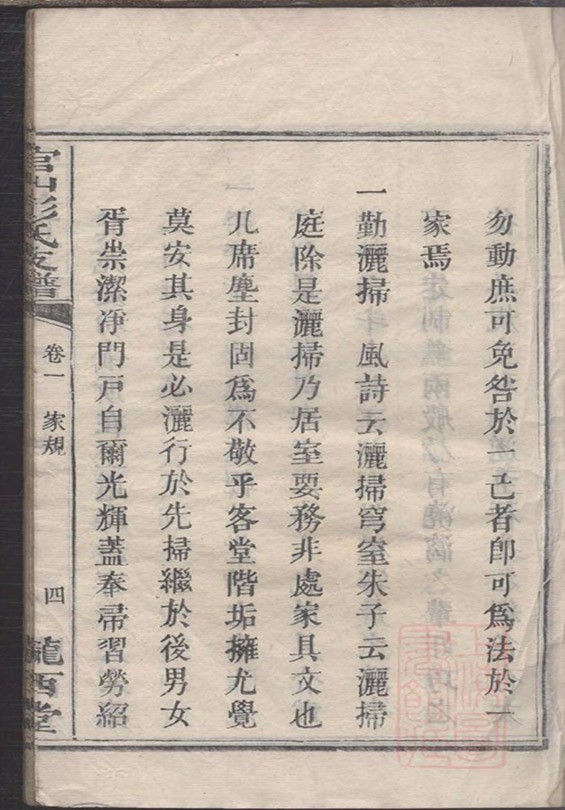 勿動庶可免咎於一己者卽可爲法於
家焉
一勤灑掃　風詩云灑掃穹室朱子云灑掃
庭除是灑掃乃居室要務非處家具文也
几席塵封固爲不敬乎客堂階垢擁尤覺
莫安其身是必灑行於先掃繼於後男女
胥崇潔净門戸自爾光輝蓋奉帚習勞紹
官山彭氏支譜
卷一　家規
四
隴西堂